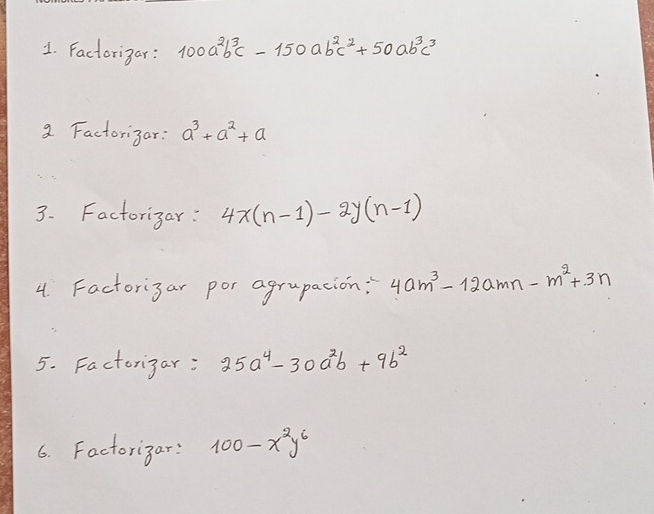 1. Factorizar: 100a²b³c - 150ab²c² + 50ab³c³
2 Factorizar: a³ + a² + a
3- Factorizar: 4x(n-1) - 2y(n-1)
4. Factorizar por agrupación: 4am³ - 12amn - m² + 3n
5- Factorizar: 25a⁴ - 30a²b + 9b²
6. Factorizar: 100 - x²y⁶